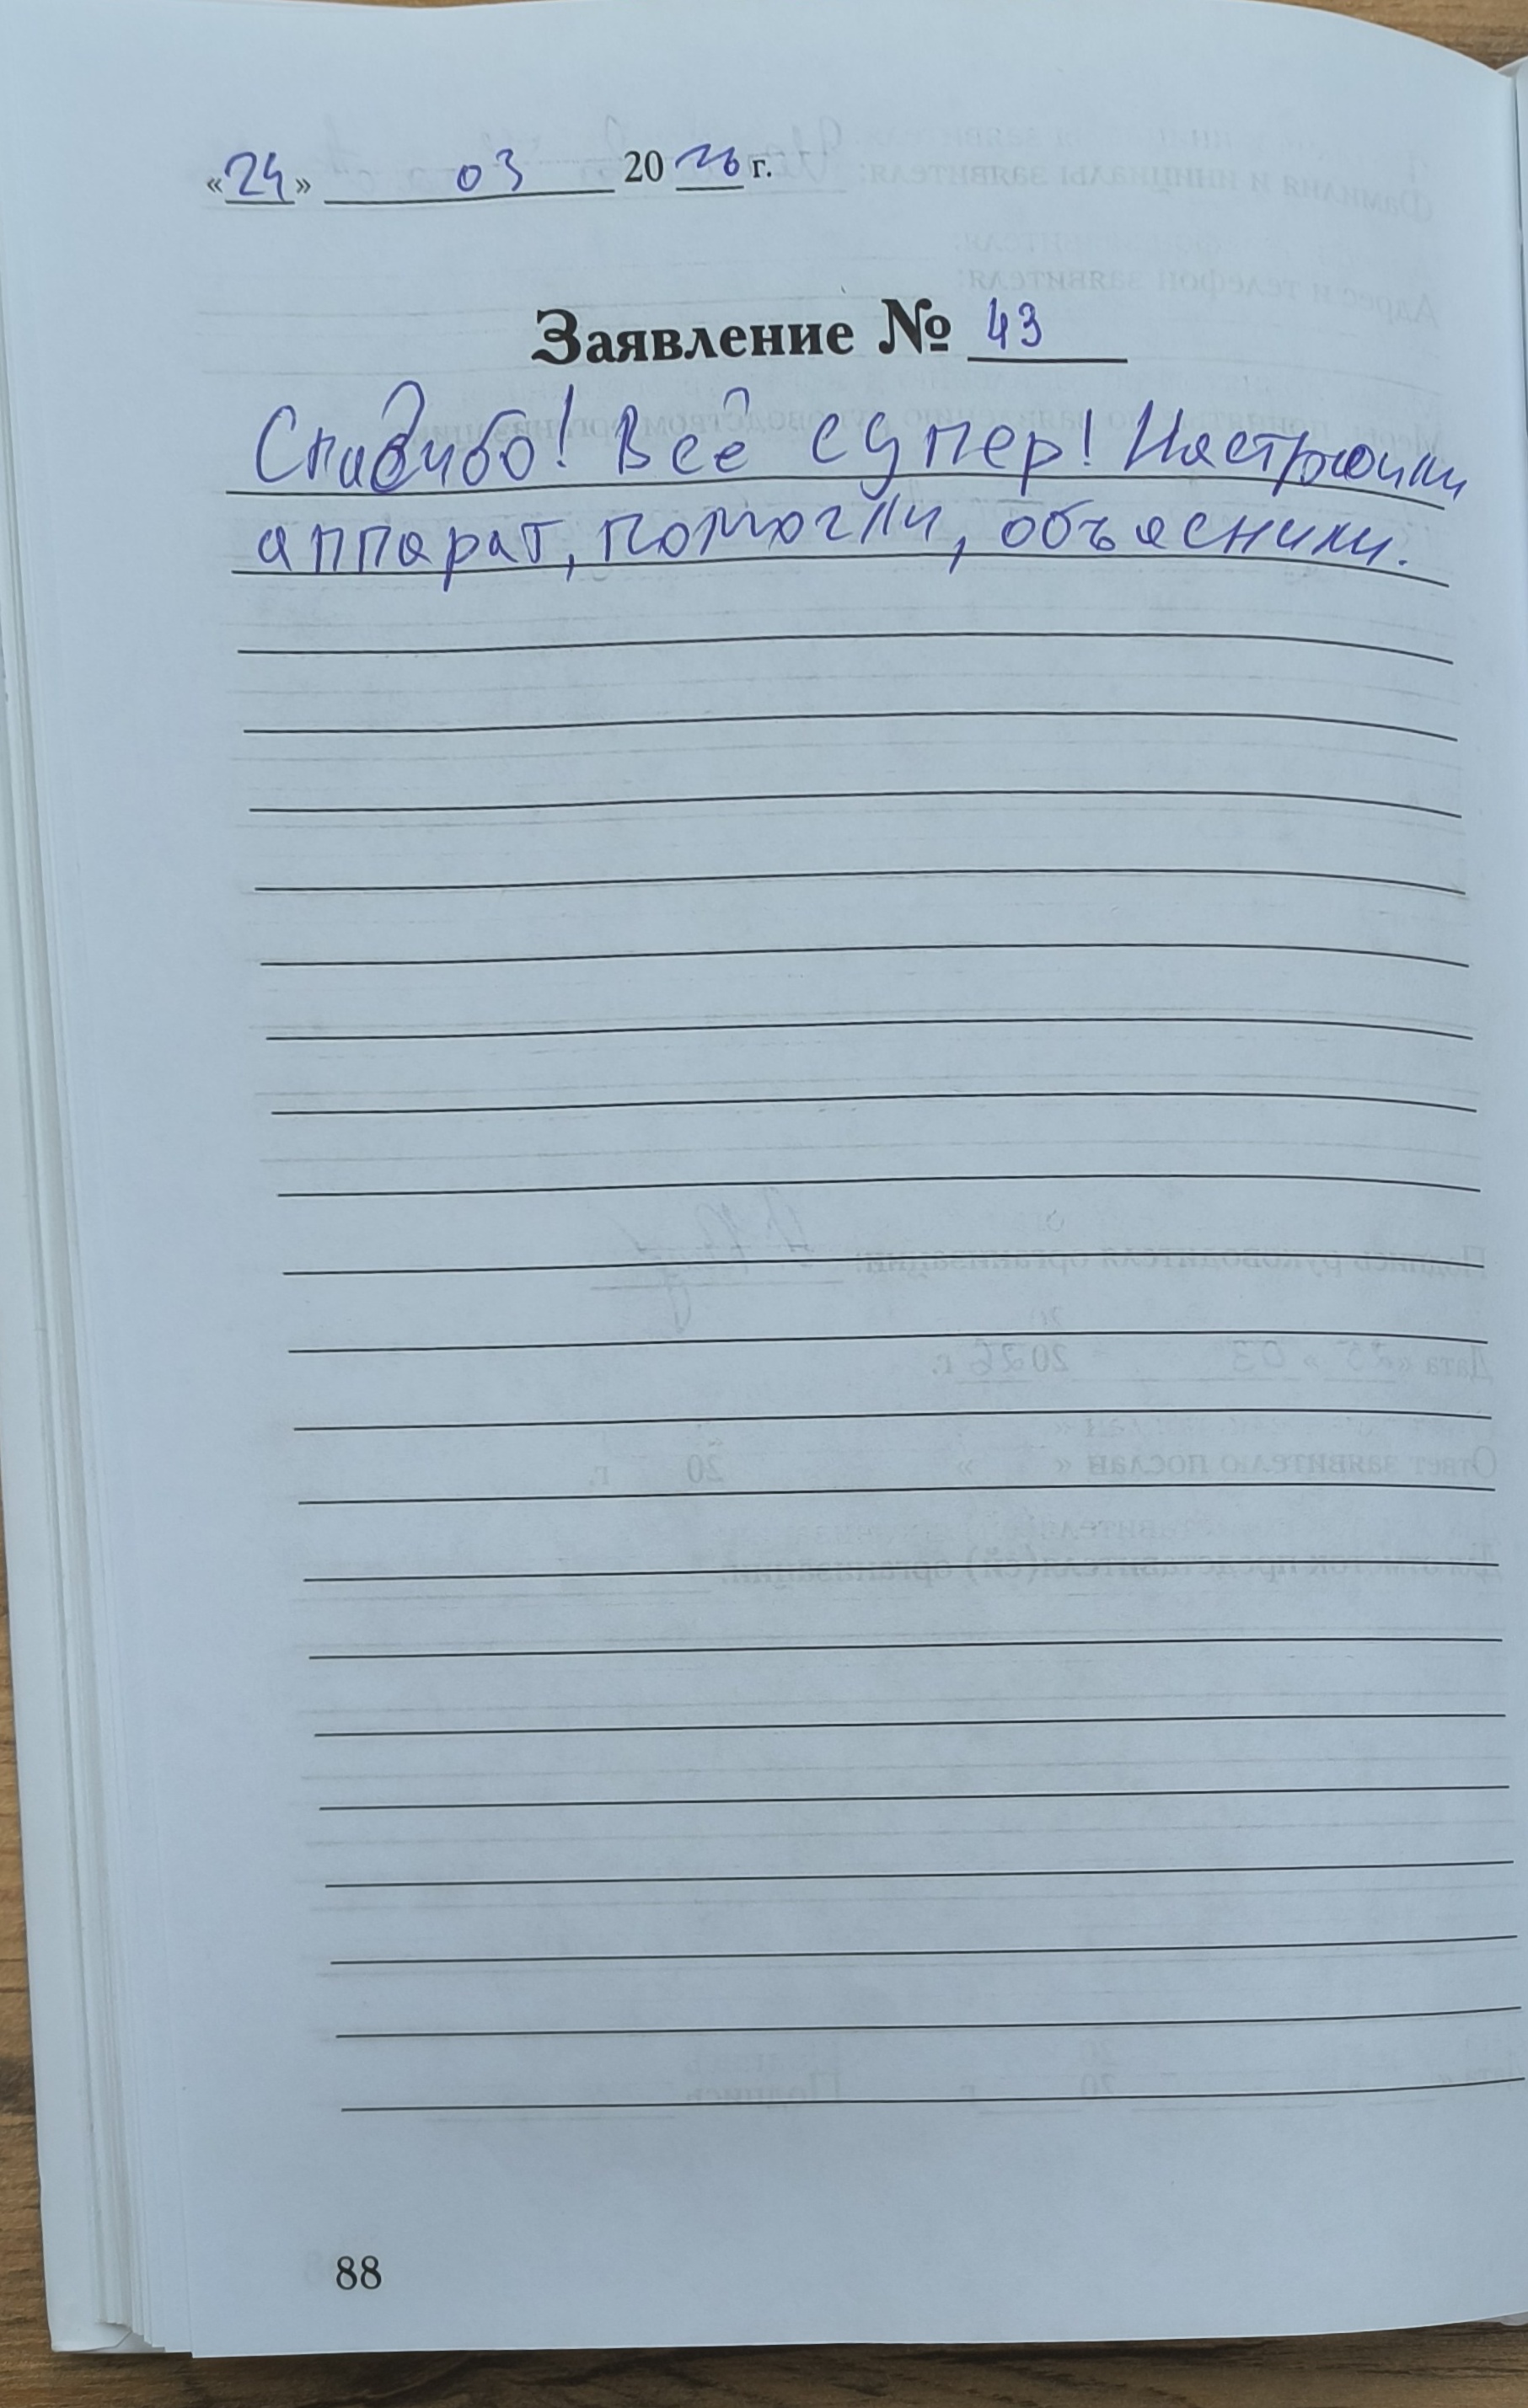 «24» 03 2026 г.
Заявление № 43
Спасибо! Всё супер! Настроили
аппарат, помогли, объяснили.
88